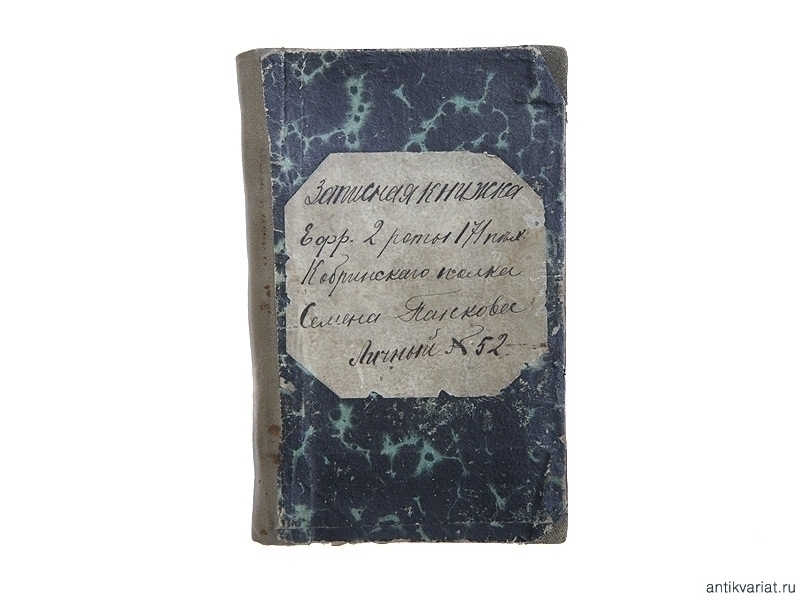 Записная книжка
Ефр. 2 роты 171 пѣх.
Кобринскаго полка
Семена Панкова
Личный № 52.
antikvariat.ru